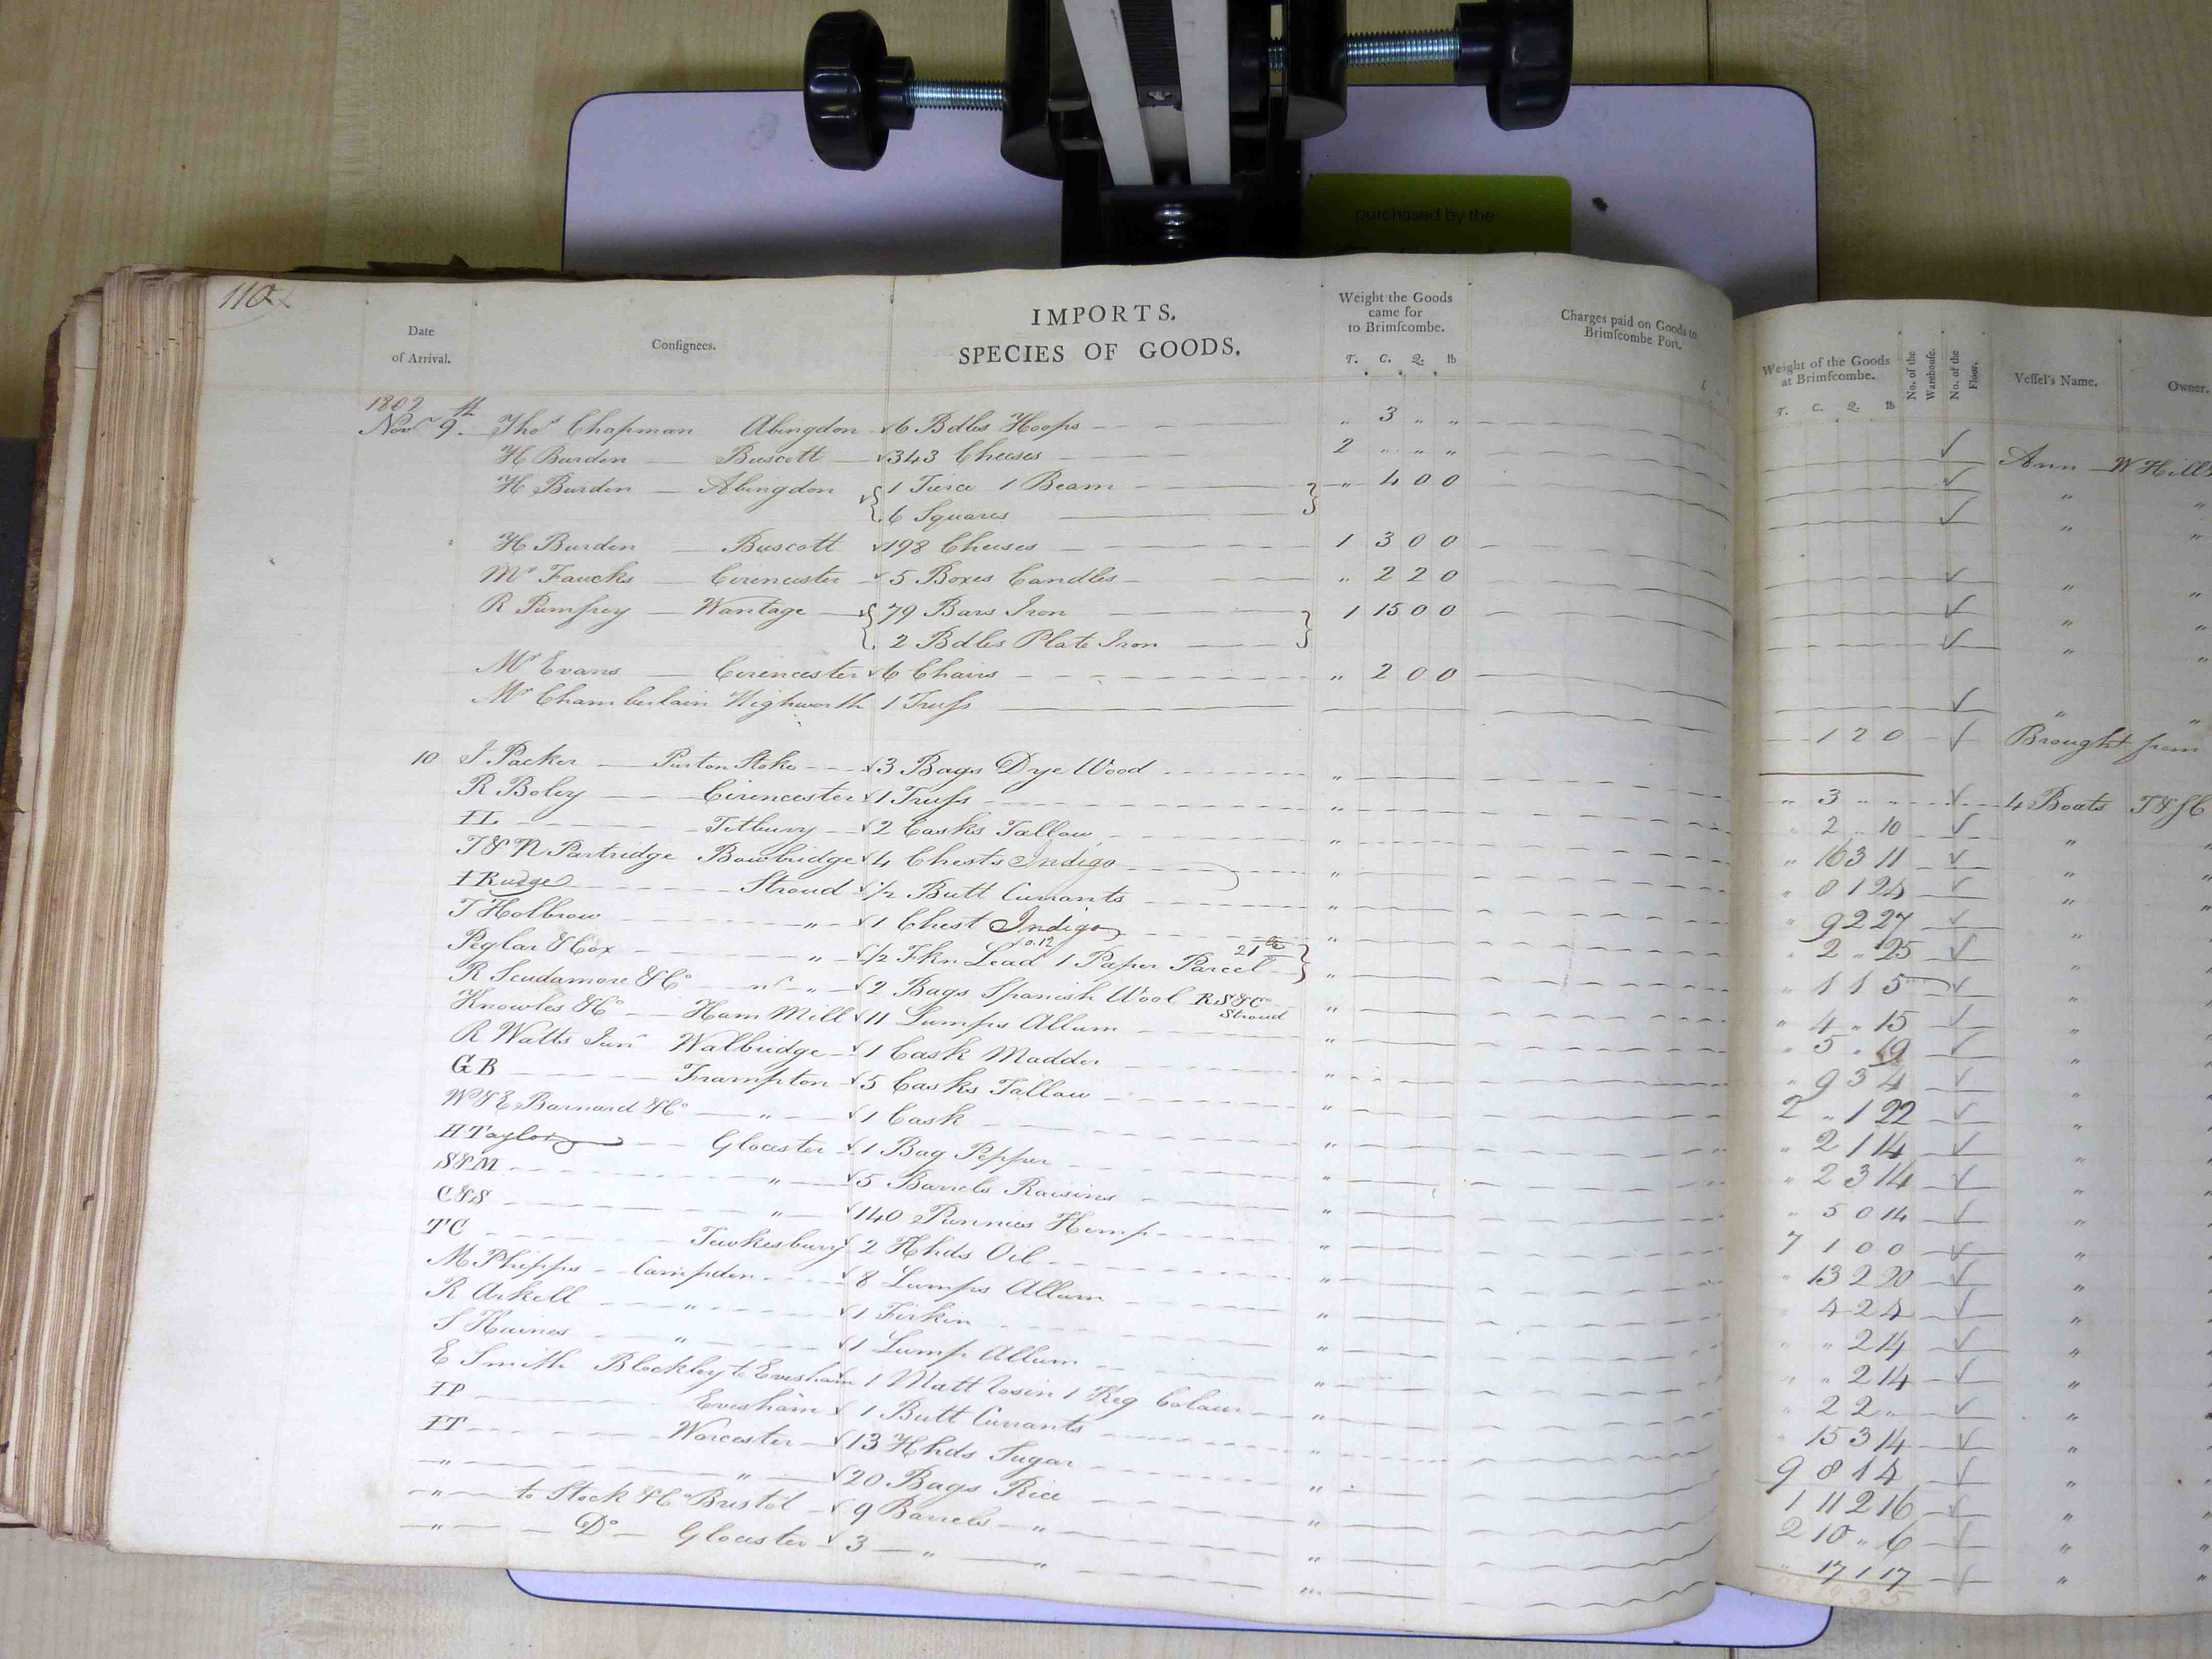 purchased by the
110
Date of Arrival. Consignees. IMPORTS. SPECIES OF GOODS. Weight the Goods came for to Brimscombe. T. C. Q. lb Charges paid on Goods to Brimscombe Port. Weight of the Goods at Brimscombe. T. C. Q. lb No. of the Warehouse. No. of the Floor. Vessel's Name. Owner.
1802
Novr 9th Thos Chapman Abingdon 6 Bdles Hoops " 3 " " Ann W Hill
H Burden Buscott 343 Cheeses 2 " " " " "
H Burden Abingdon 1 Tierce 1 Beam " 4 0 0 " "
6 Squares
H Burden Buscott 198 Cheeses 1 3 0 0 " "
Mr Faucks Cirencester 5 Boxes Candles " 2 2 0 " "
R Pumfrey Wantage 79 Bars Iron 1 15 0 0 " "
2 Bdles Plate Iron
Mr Evans Cirencester 6 Chairs " 2 0 0 " "
Mr Chamberlain Highworth 1 Truss 1 2 0 Brought from
10 J Packer Purton Stoke 3 Bags Dye Wood " " 3 " " 4 Boats
R Boley Cirencester 1 Truss " " 2 " 10 "
IL Tetbury 2 Casks Tallow " " 16 3 11 "
T & N Partridge Bowbridge 4 Chests Indigo "
I Rudge Stroud 1/2 Butt Currants " " 9 2 27 "
T Holbrow " 1 Chest Indigo " " 2 " 25 "
Peglar & Cox " 1/2 Fkn Lead 1 Paper Parcel 21 lb " " 1 1 5 "
R Scudamore & Co " 2 Bags Spanish Wool RS&Co Stroud " " 4 " 15 "
Knowles & Co Ham Mill 11 Lumps Allum " " 5 " 19 "
R Watts Junr Walbridge 1 Cask Madder " " 9 3 4 "
GB Frampton 5 Casks Tallow " 2 " 1 22 "
W & E Barnard & Co " 1 Cask " " 2 1 14 "
H Taylor Glocester 1 Bag Pepper " " 2 3 14 "
S&M " 5 Barrels Raisins " " 5 0 14 "
C&S " 140 Punnies Hemp " 7 1 0 0 "
TC Tewkesbury 2 Hhds Oil " " 13 2 20 "
M Phipps Campden 8 Lumps Allum " " 4 2 4 "
R Arkell " 1 Firkin " " " 2 14 "
S Haines " 1 Lump Allum " " " 2 14 "
E Smith Blockley to Evesham 1 Matt Rosin 1 Keg Colour " " 2 2 " "
IP Evesham 1 Butt Currants " " 15 3 14 "
IT Worcester 13 Hhds Sugar " 9 8 1 4 "
" " 20 Bags Rice " 1 11 2 16 "
" to Stock & Co Bristol 9 Barrels " " 2 10 " 6 "
" Do Glocester 3 " " " " 17 1 17 "